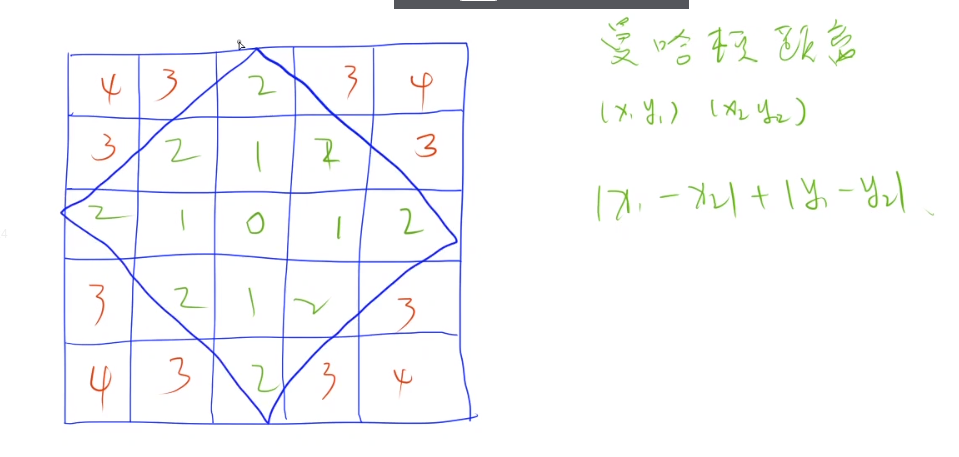 4 3 2 3 4
3 2 1 2 3
2 1 0 1 2
3 2 1 2 3
4 3 2 3 4
曼哈顿距离
(x₁ y₁) (x₂ y₂)
|x₁ - x₂| + |y₁ - y₂|